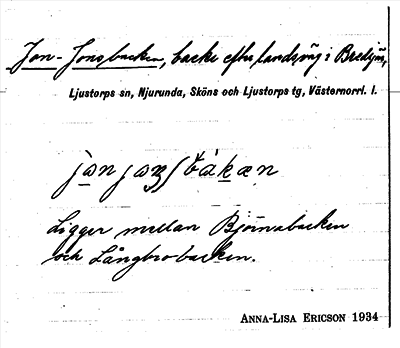 Jon-Jonsbacken, backe efter landsväg i Bredsjön,
Ljustorps sn, Njurunda, Sköns och Ljustorps tg, Västernorrl. l.
Ligger mellan Björnabacken
och Långbrobacken.
ANNA-LISA ERICSON 1934